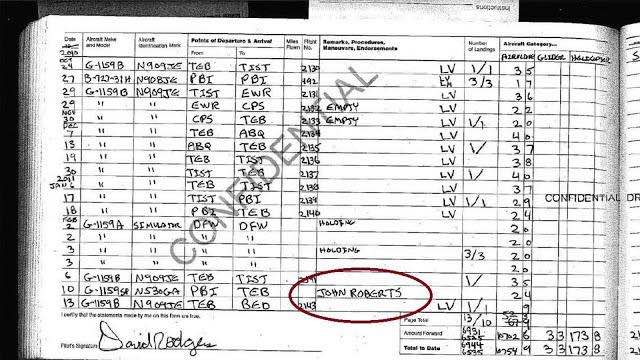 Instructions
Date
Aircraft Make and Model
Aircraft Identification Mark
Points of Departure & Arrival
From
To
Miles Flown
Flight No.
Remarks, Procedures, Maneuvers, Endorsements
Number of Landings
Aircraft Category
AIRPLANE GLIDER HELICOPTER
2010
OCT
24 G-1159B N909JE TEB TIST 2130 LV 1/1 3 5
27 B-727-31H N908JE PBI PBI 492 LV 3/3 1 7
29 G-1159B N909JE TIST EWR 2131 LV 3 6
29 " " EWR CPS 2132 EMPTY LV 2 2
NOV
30 " " CPS TEB 2133 EMPTY LV 1/1 2 0
DEC
7 " " TEB ABQ 2134 LV 4 0
13 " " ABQ TEB 2135 LV 1/1 3 7
19 " " TEB TIST 2136 LV 3 8
30 " " TIST TEB 2137 LV 4 0
2011
JAN 6 " " TEB TIST 2138 LV 3 7
17 " " TIST PBI 2139 LV 1/1 2 9
18 " " PBI TEB 2140 LV 2 4
FEB
2 G-1159A SIMULATOR DFW DFW HOLDING 2 0
2 " " " " 2 0
3 " " " " HOLDING 2 0
3 " " " " 3/3 2 0
6 G-1159B N909JE TEB TIST 2141 1/ 3 5
10 G-1159B N530GA PBI TEB JOHN ROBERTS 2 4
13 G-1159B N909JE TEB BED 2143 LV 1/1 9
CONFIDENTIAL
CONFIDENTIAL
I certify that the statements made by me on this form are true.
Pilot's Signature
David Rodgers
Page Total 13/10
Amount Forward 6931 6535 33 173 8
Total to Date 6944 33 173 8